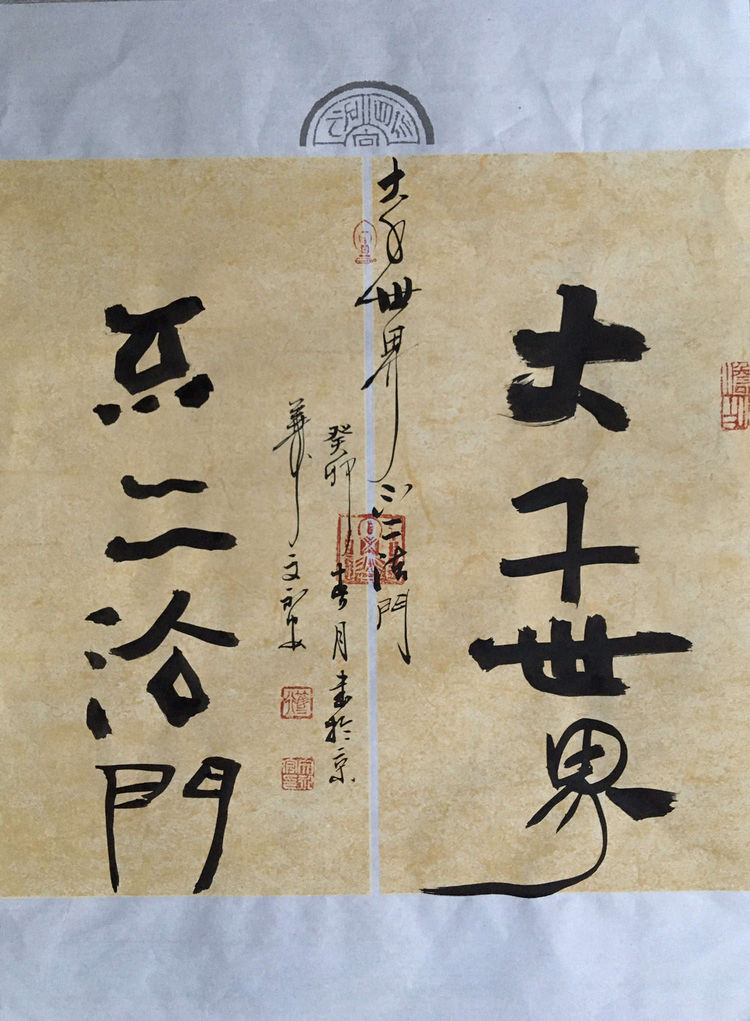 大千世界
不二法門
大千世界不二法門
癸卯春月書於京
華